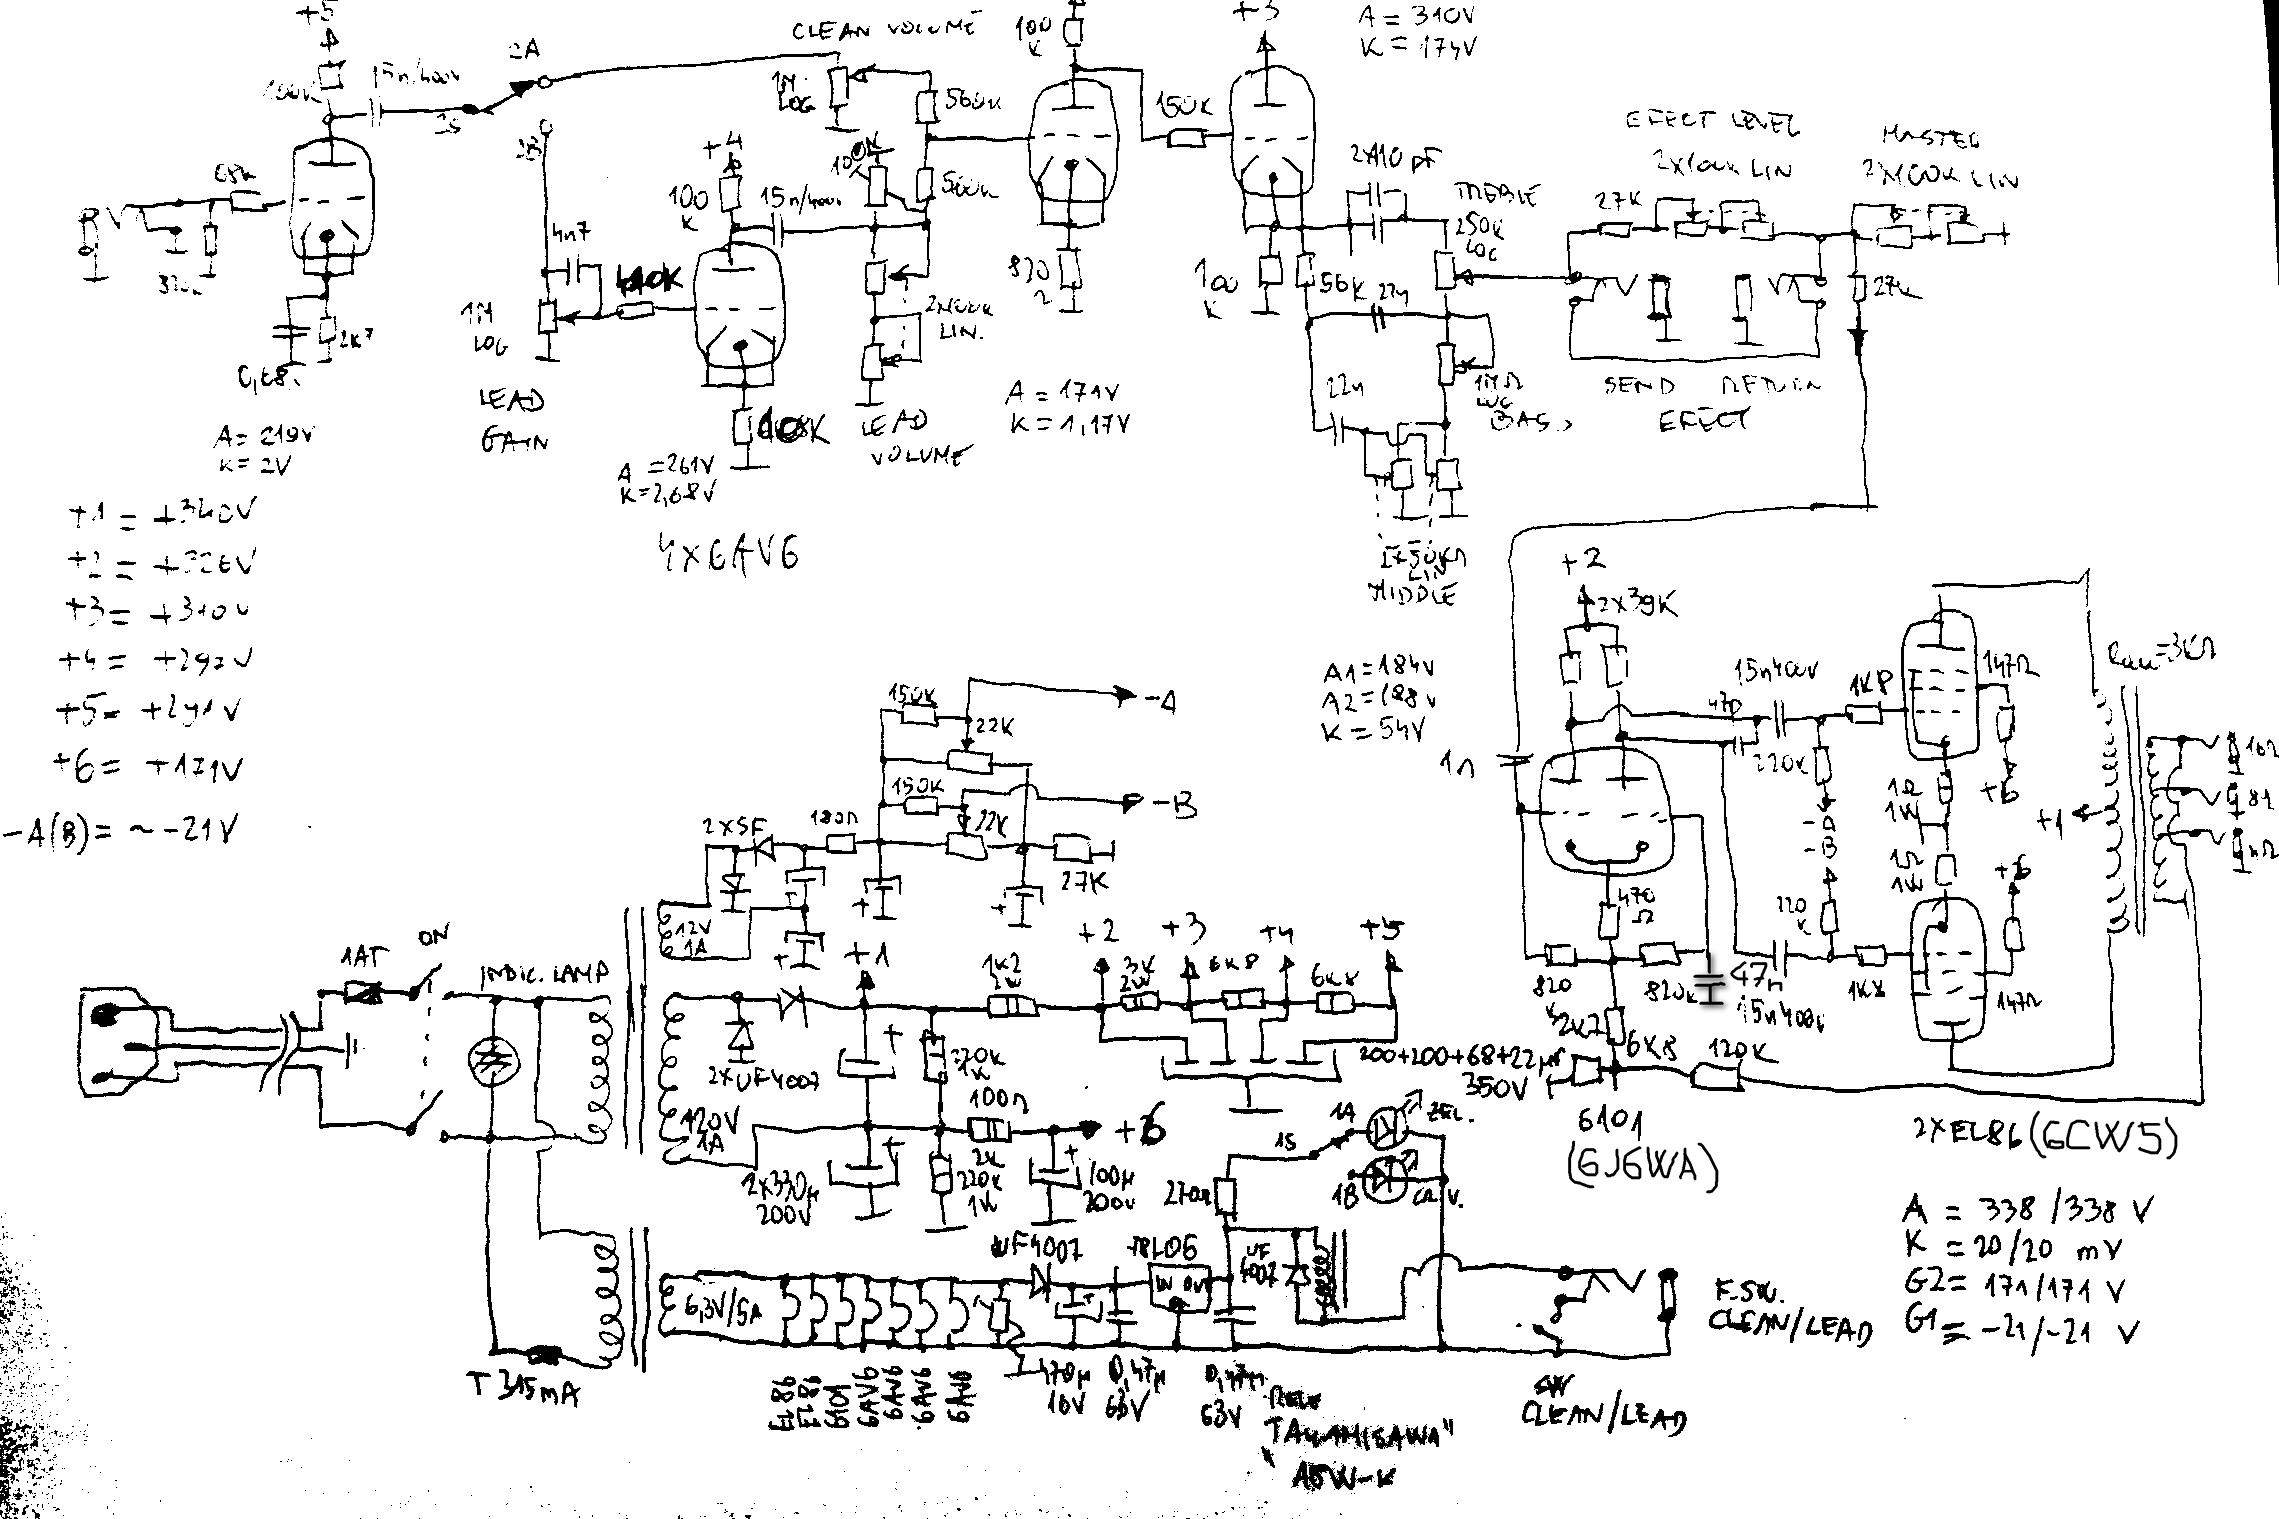 +5
100K
15n/400v
2A
2S
2B
CLEAN VOLUME
1M
LOG
560K
100
K
150K
+3
A = 310V
K = 174V
68K
2K7
A = 219V
K = 2V
4n7
1M
LOG
LEAD
GAIN
+4
100
K
15n/400v
A = 261V
K = 2,68V
4X6AV6
100K
560K
2X100K
LIN.
LEAD
VOLUME
820
Ω
A = 171V
K = 1,17V
100
K
56K
2X410 pF
TREBLE
250K
LOG
22n
22n
1MΩ
LOG
BAS
LIN
MIDDLE
EFECT LEVEL
2X100K LIN
27K
MASTER
2X100K LIN
27K
SEND
RETURN
EFECT
+1 = +340V
+2 = +326V
+3 = +310V
+4 = +292V
+5 = +291V
+6 = +171V
-A(B) = ~ -21V
+2
2X39K
A1 = 184V
A2 = 188V
K = 54V
1n
15n400V
47p
1K8
147Ω
220K
-A
-B
220
K
1Ω
1W
1Ω
1W
+6
+6
+1
Raa = 3KΩ
16Ω
8Ω
470
Ω
820
K
820K
47n
15n400V
1K8
147Ω
2K2
6K8
120K
6101
(6J6WA)
2XEL86 (6CW5)
A = 338/338 V
K = 20/20 mV
G2 = 171/171 V
G1 = -21/-21 V
150K
-A
22K
150K
-B
22K
2X5F
180Ω
27K
12V
1A
1AT
ON
INDIC. LAMP
+1
1K2
2W
+2
3K
2W
+3
6K8
+4
6K8
+5
200+200+68+22µF
350V
2XUF4007
120V
1A
220K
1W
100Ω
2W
+6
2X330µ
200V
220K
1W
100µ
200V
270Ω
1S
1A
ZEL.
1B
T 315mA
6,3V/5A
UF4007
78L06
IN
OUT
UF
4007
EL86
EL86
6101
6AV6
6AV6
6AV6
6AV6
470µ
10V
0,47µ
63V
0,47µ
63V
RELE
"TAKAMISAWA"
A5W-K
F.SW.
CLEAN/LEAD
SW
CLEAN/LEAD